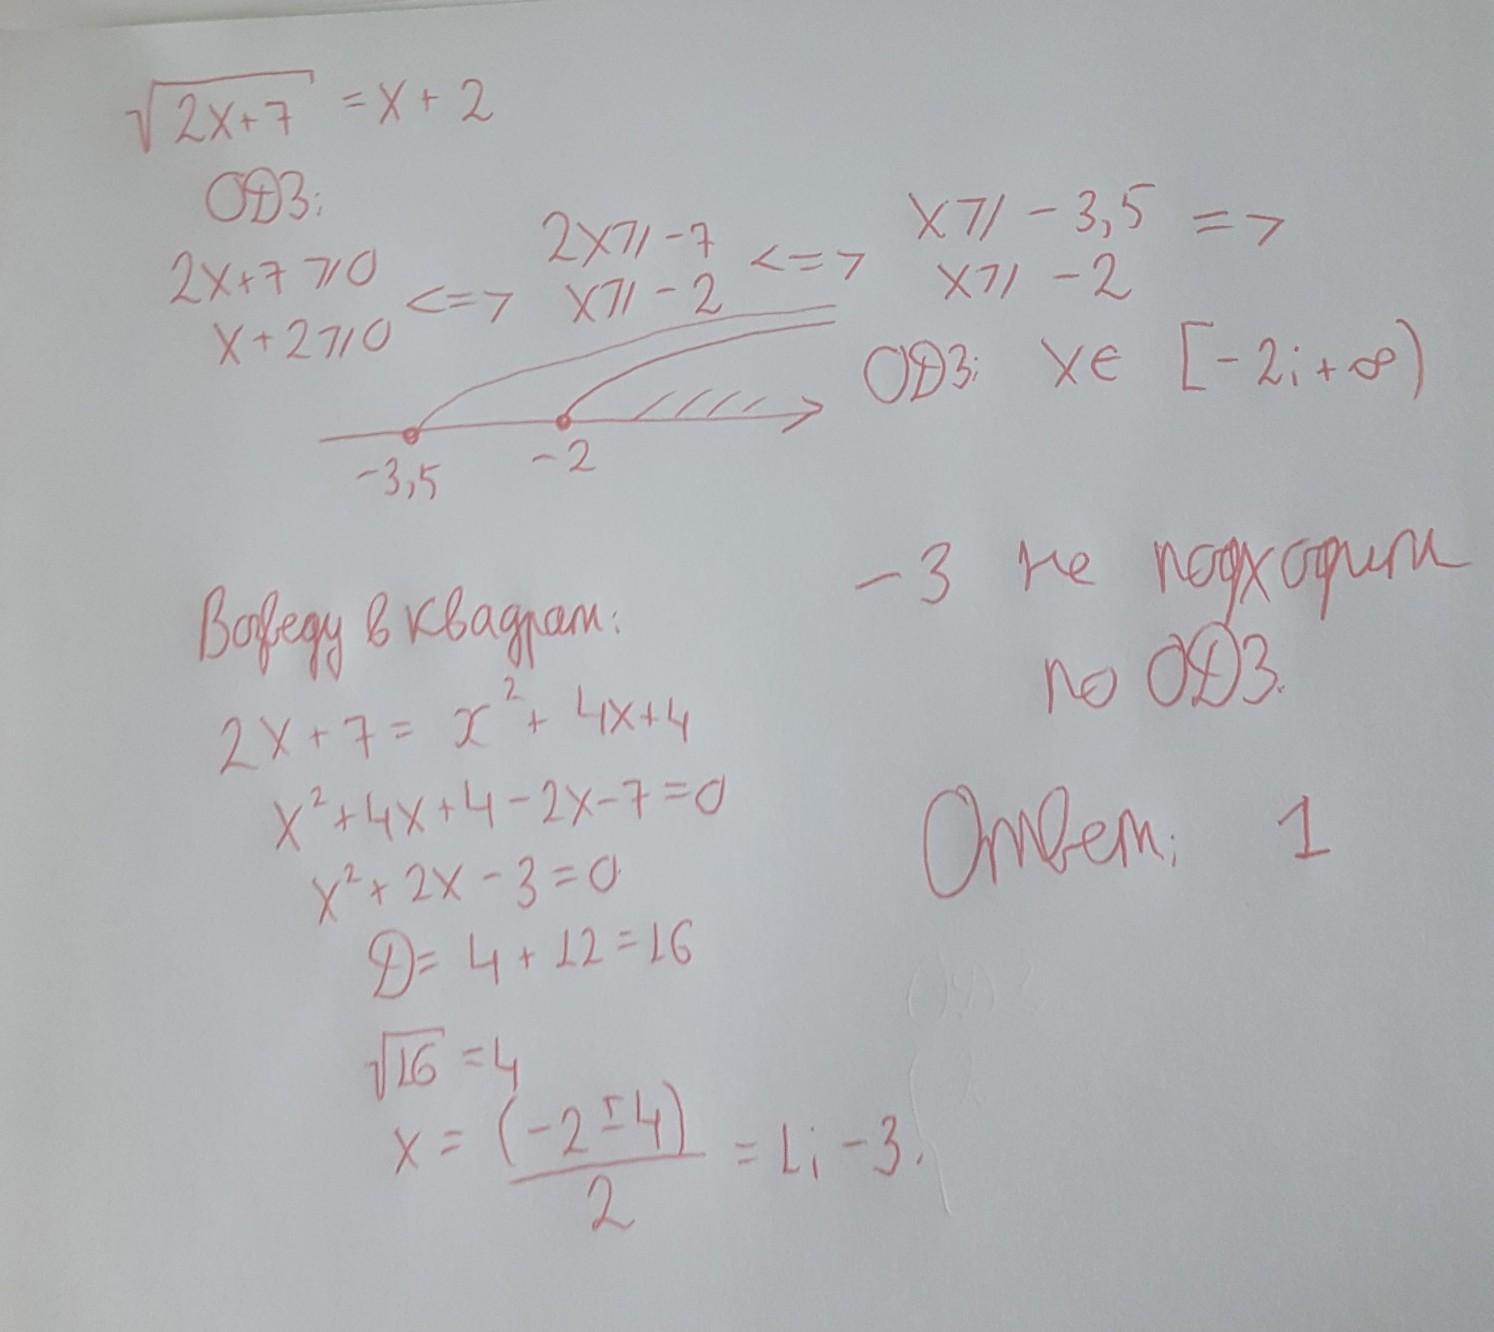 √2x+7 = x + 2
ОДЗ:
2x+7 ⩾ 0 <=> 2x ⩾ -7 <=> x ⩾ -3,5 =>
x+2 ⩾ 0 x ⩾ -2 x ⩾ -2
ОДЗ: x ∈ [-2; +∞)
-3,5 -2
Возведу в квадрат:
2x + 7 = x² + 4x+4
x²+4x+4-2x-7=0
x²+2x-3=0
D= 4 + 12 =16
√16 =4
x = (-2±4)/2 = 1; -3.
-3 не подходит
по ОДЗ.
Ответ: 1